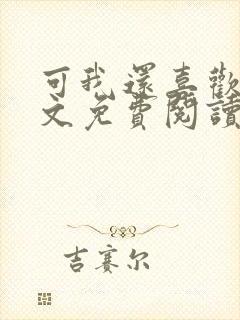 可我還喜歡
文免費閱讀
吉賽尔